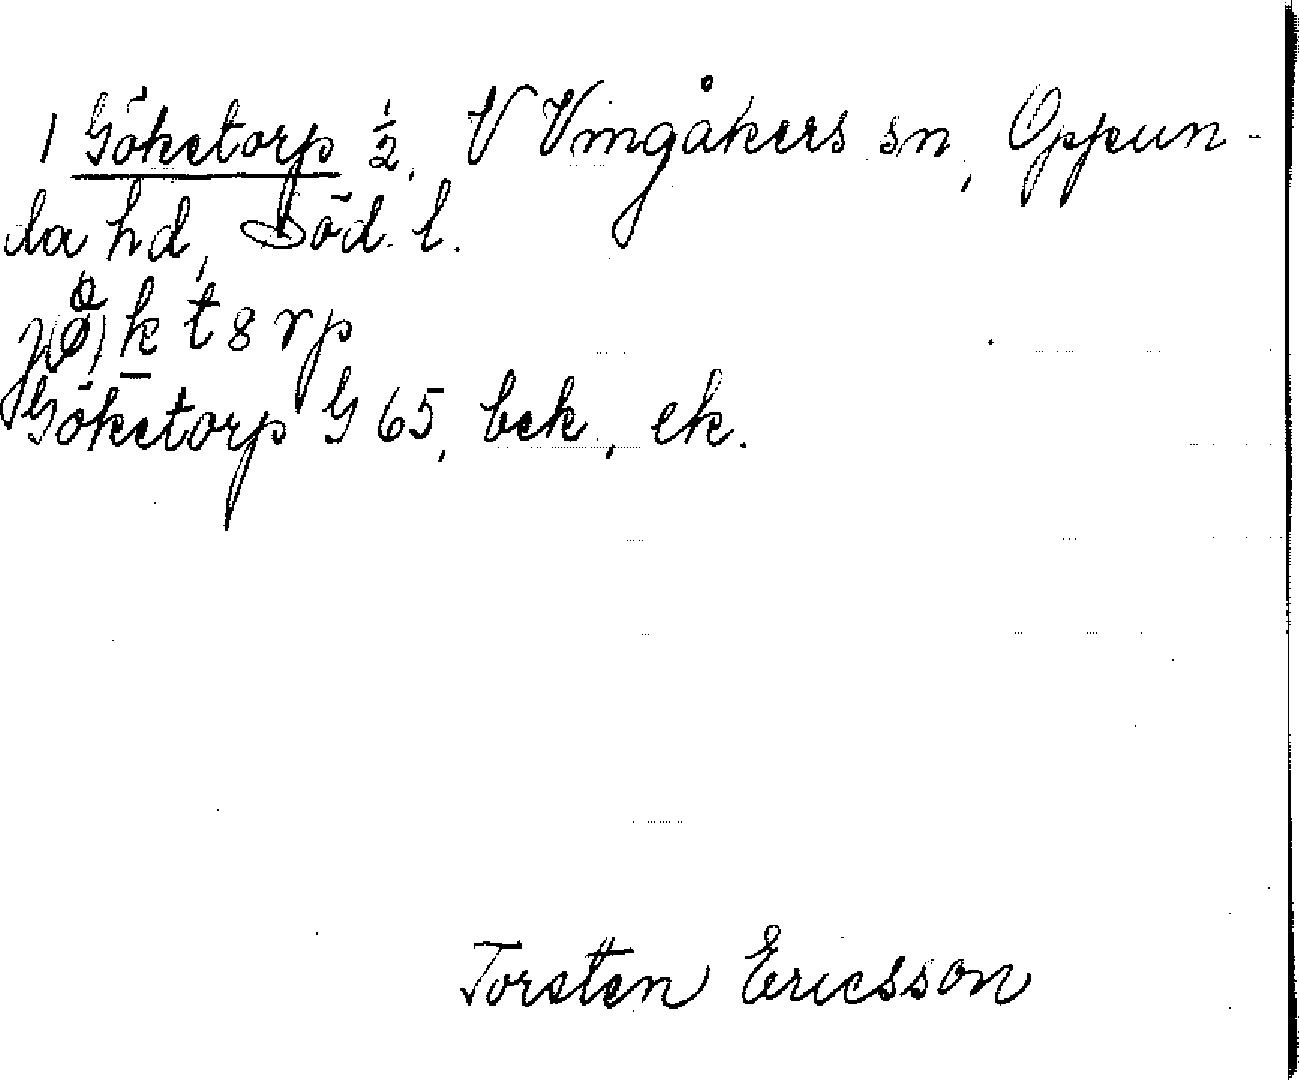 1 Göketorp ½, V Vingåkers sn, Oppun-
da hd, Söd. l.
Göketorp G 65, bek, ek.
Torsten Ericsson